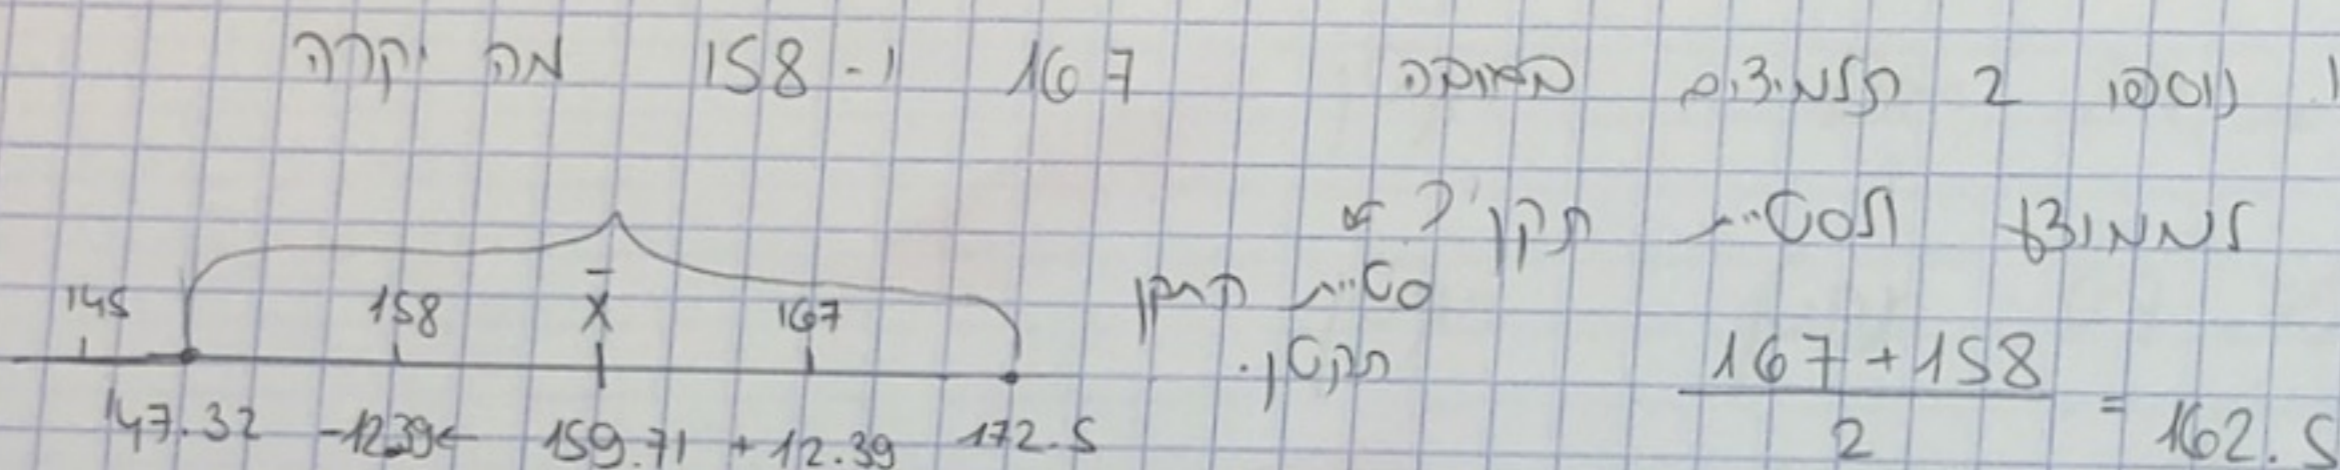 נוספו 2 תלמידים בגובה 167 ו- 158 מה יקרה
לממוצע ולסטיית תקן?
סטיית התקן
תקטן.
167+158
2
= 162.5
145 158 X̄ 167
147.32 -12.39← 159.71 +12.39 172.5